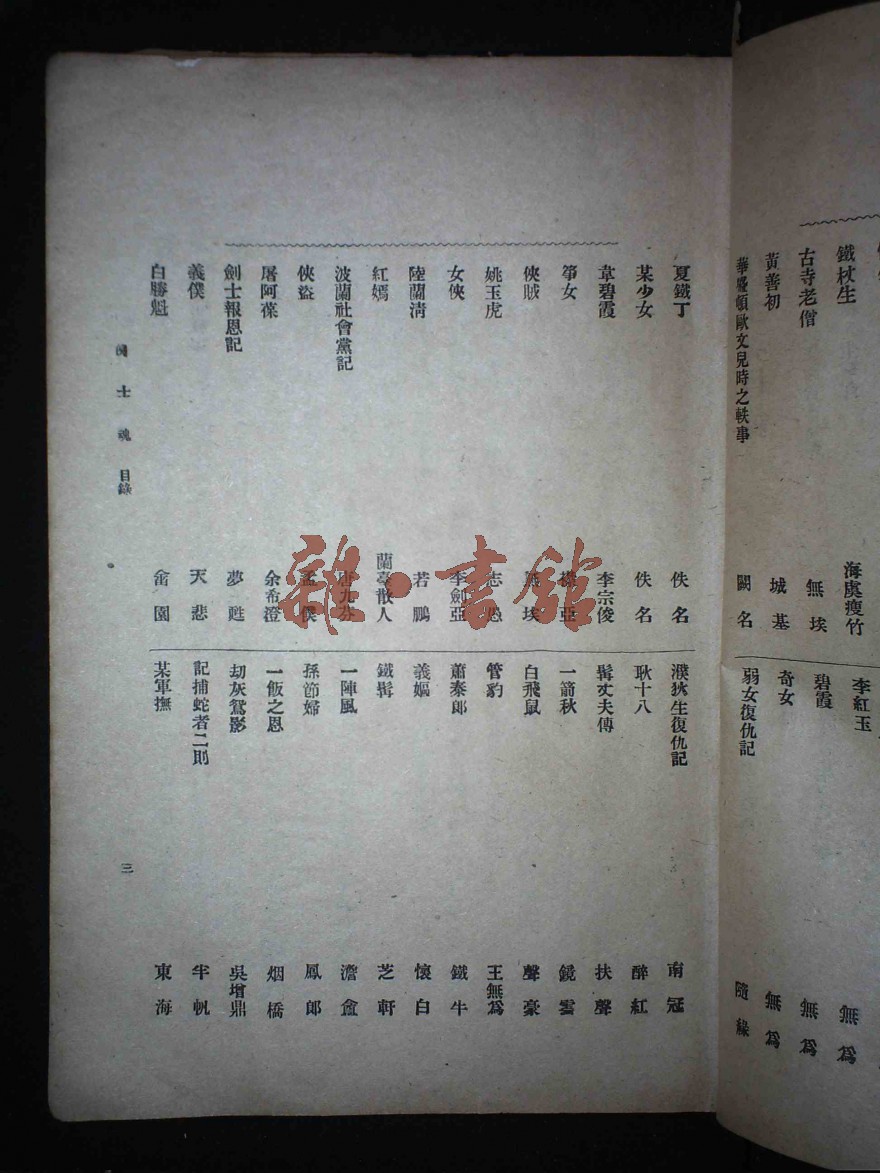 鐵杖生 海虞瘦竹
古寺老僧 無埃
黃善初 城基
華盛頓歐文兒時之軼事 闕名
李紅玉 無爲
碧霞 無爲
奇女 無爲
弱女復仇記 隨緣
夏鐵丁 佚名
某少女 佚名
韋碧霞 李宗俊
箏女 亞
俠賊 埃
姚玉虎 志
女俠 李劍亞
陸蘭清 若鵬
紅嫣 蘭臺散人
波蘭社會黨記 九芬
俠盜 僕
屠阿葆 余希澄
劍士報恩記 夢甦
義僕 天悲
白勝魁 園
濮狄生復仇記 南冠
耿十八 醉紅
髯丈夫傳 扶聲
一箭秋 鏡雲
白飛鼠 聲豪
管豹 王無爲
蕭泰郎 鐵牛
義嫗 懷白
鐵髯 芝軒
一陣風 澹盦
孫節婦 鳳郎
一飯之恩 烟橋
劫灰鴛影 吳增鼎
記捕蛇者二則 半帆
某軍撫 東海
士魂 目錄
三
雜·書館